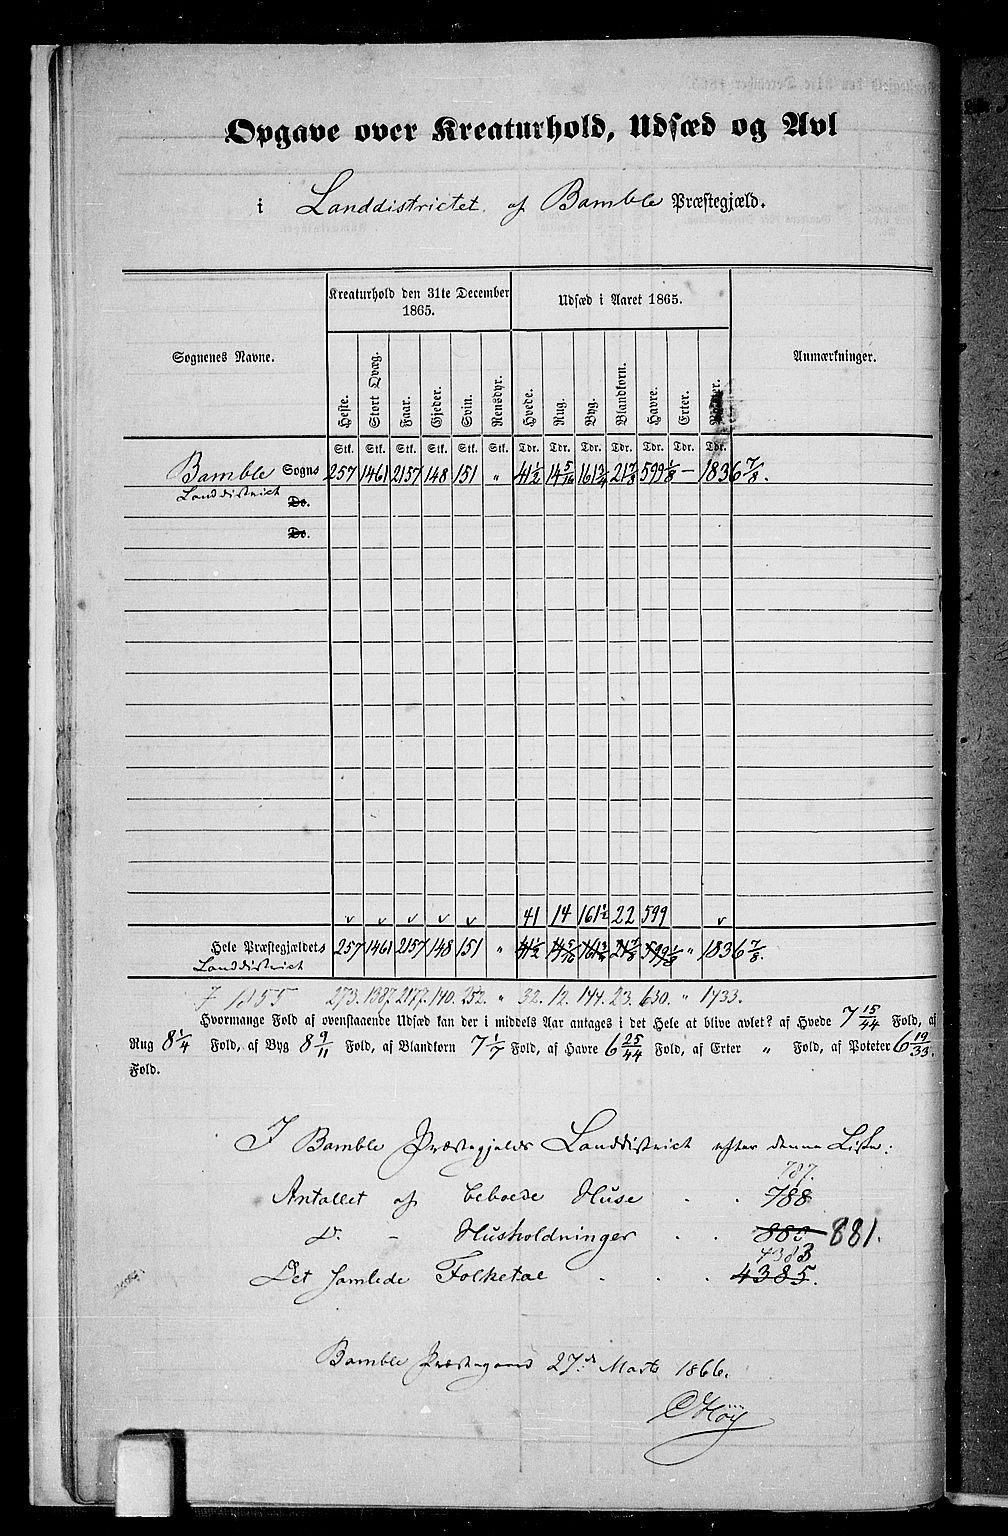 Opgave over Kreaturhold, Udsæd og Avl
i Landdistrictet af Bamble Præstegjæld.
Kreaturhold den 31te December 1865.
Udsæd i Aaret 1865.
Sognenes Navne.
Anmærkninger.
Heste. Stort Qvæg. Faar. Gjeder. Svin. Rensdyr. Hvede. Rug. Byg. Blandkorn. Havre. Erter.
Stk. Stk. Stk. Stk. Stk. Stk. Tdr. Tdr. Tdr. Tdr. Tdr. Tdr. Tdr.
Bamble Sogns 257 1461 2157 148 151 " 41 1/2 14 5/16 161 3/4 21 7/8 599 1/8 – 1836 7/8.
Landdistrict
Do.
Do.
v v v v v 41 14 161 1/2 22 599 v
Hele Præstegjældets 257 1461 2157 148 151 " 41 1/2 14 5/16 161 3/4 21 7/8 599 1/8 " 1836 7/8.
Landdistrict
I 1855 273. 1387. 2177. 140. 252. " 32. 12. 144. 23. 630. " 1733.
Hvormange Fold af ovenstaaende Udsæd kan der i middels Aar antages i det Hele at blive avlet? af Hvede 7 15/44 Fold, af
Rug 8 1/4 Fold, af Byg 8 9/11 Fold, af Blandkorn 7 1/7 Fold, af Havre 6 25/44 Fold, af Erter " Fold, af Poteter 6 19/33.
Fold.
I Bamble Præstegjelds Landdistrict efter denne Liste:
787.
Antallet af beboede Huse . . 788
D. – Husholdninger . . 880 881.
4383
Det samlede Folketal . . . 4385.
Bamble Præstegaard 27de Marts 1866.
CHöy